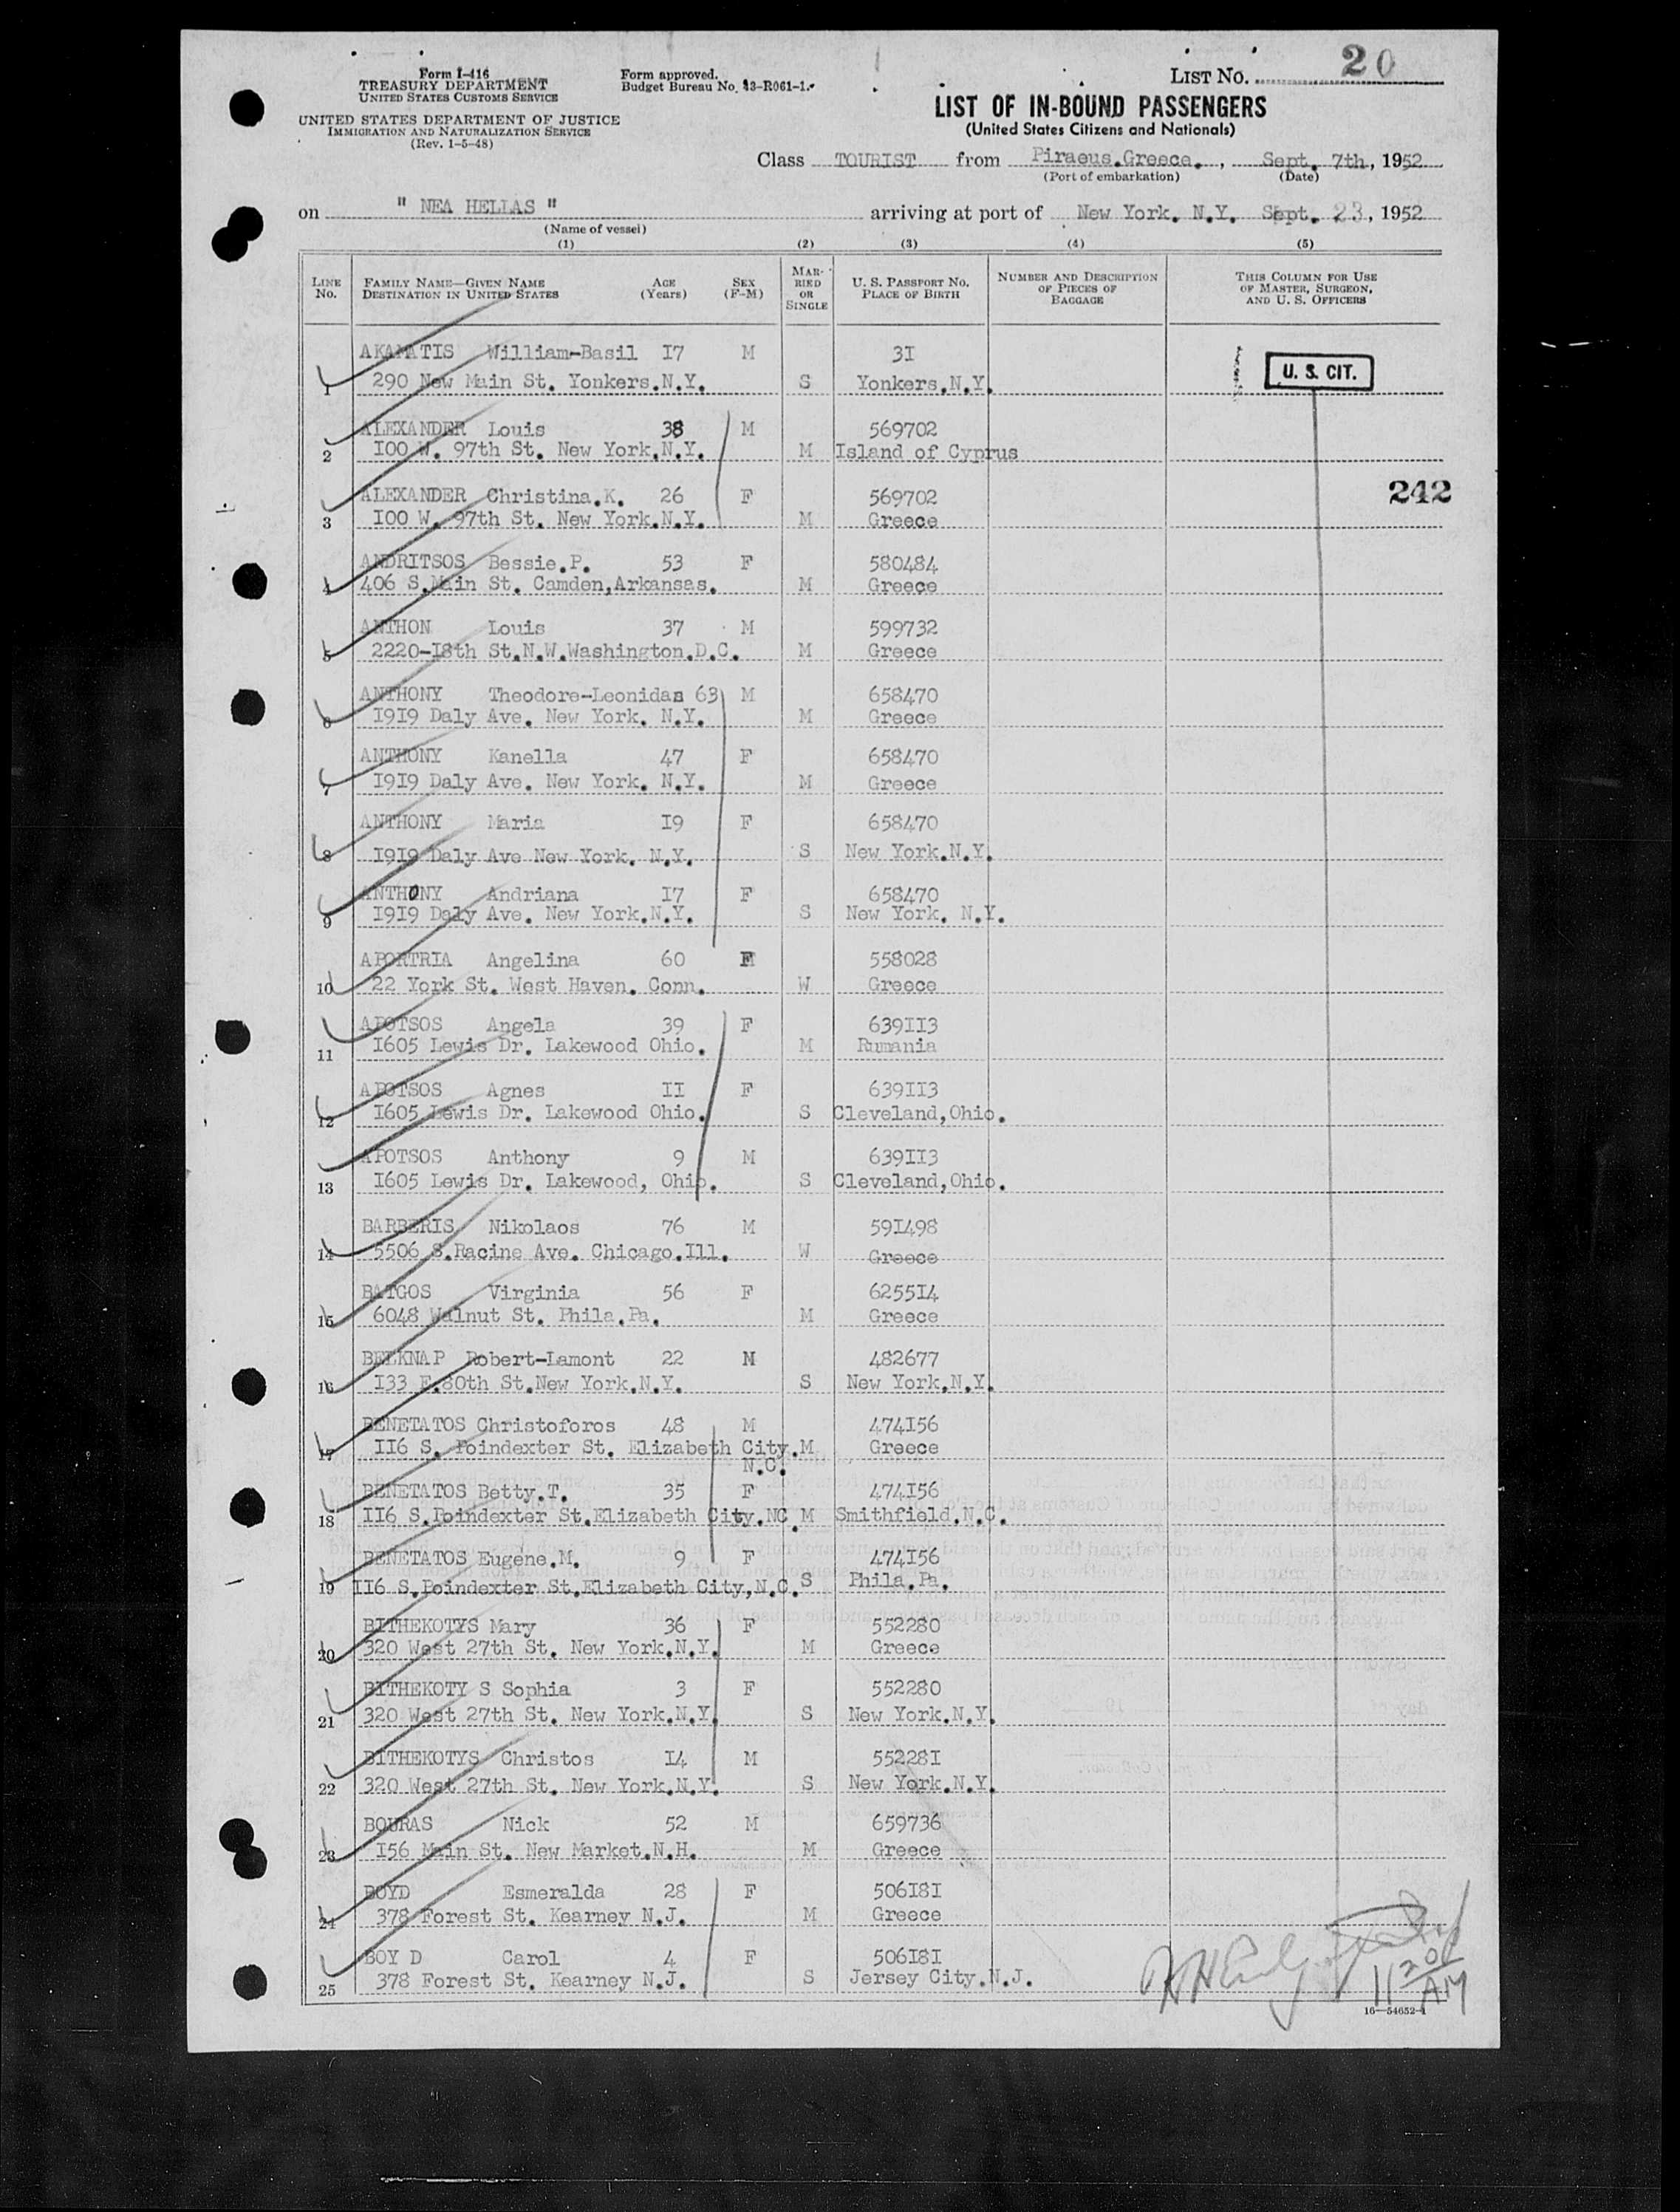 Form I-416
TREASURY DEPARTMENT
UNITED STATES CUSTOMS SERVICE
UNITED STATES DEPARTMENT OF JUSTICE
IMMIGRATION AND NATURALIZATION SERVICE
(Rev. 1-5-48)
Form approved.
Budget Bureau No. 43-R061-1.
LIST NO. 20
LIST OF IN-BOUND PASSENGERS
(United States Citizens and Nationals)
Class TOURIST from Piraeus.Greece. , Sept. 7th, 1952
(Port of embarkation) (Date)
on " NEA HELLAS " arriving at port of New York. N.Y. Sept. 23, 1952
(Name of vessel)
(1) (2) (3) (4) (5)
LINE No. FAMILY NAME—GIVEN NAME DESTINATION IN UNITED STATES AGE (Years) SEX (F-M) MARRIED OR SINGLE U. S. PASSPORT NO. PLACE OF BIRTH NUMBER AND DESCRIPTION OF PIECES OF BAGGAGE THIS COLUMN FOR USE OF MASTER, SURGEON, AND U. S. OFFICERS
AKAMATIS William-Basil I7 M 3I
1 290 New Main St. Yonkers.N.Y. S Yonkers.N.Y.
U. S. CIT.
ALEXANDER Louis 38 M 569702
2 I00 W. 97th St. New York.N.Y. M Island of Cyprus
ALEXANDER Christina.K. 26 F 569702
242
3 I00 W. 97th St. New York.N.Y. M Greece
ANDRITSOS Bessie.P. 53 F 580484
4 406 S.Main St. Camden,Arkansas. M Greece
ANTHON Louis 37 M 599732
5 2220-I8th St.N.W.Washington.D.C. M Greece
ANTHONY Theodore-Leonidas 63 M 658470
6 I9I9 Daly Ave. New York. N.Y. M Greece
ANTHONY Kanella 47 F 658470
7 I9I9 Daly Ave. New York. N.Y. M Greece
ANTHONY Maria I9 F 658470
8 I9I9 Daly Ave New York. N.Y. S New York.N.Y.
ANTHONY Andriana I7 F 658470
9 I9I9 Daly Ave. New York.N.Y. S New York. N.Y.
APORTRIA Angelina 60 F 558028
10 22 York St. West Haven. Conn. W Greece
APOTSOS Angela 39 F 639II3
11 I605 Lewis Dr. Lakewood Ohio. M Rumania
APOTSOS Agnes II F 639II3
12 I605 Lewis Dr. Lakewood Ohio. S Cleveland,Ohio.
APOTSOS Anthony 9 M 639II3
13 I605 Lewis Dr. Lakewood, Ohio. S Cleveland,Ohio.
BARBERIS Nikolaos 76 M 59I498
14 5506 S.Racine Ave. Chicago.Ill. W Greece
BATGOS Virginia 56 F 6255I4
15 6048 Walnut St. Phila.Pa. M Greece
BELKNAP Robert-Lamont 22 M 482677
16 I33 E.80th St.New York.N.Y. S New York.N.Y.
BENETATOS Christoforos 48 M 474I56
17 II6 S. Poindexter St. Elizabeth City. M Greece
N.C.
BENETATOS Betty.T. 35 F 474I56
18 II6 S.Poindexter St.Elizabeth City.NC. M Smithfield.N.C.
BENETATOS Eugene.M. 9 F 474I56
19 II6 S.Poindexter St.Elizabeth City,N.C. S Phila.Pa.
BITHEKOTYS Mary 36 F 552280
20 320 West 27th St. New York.N.Y. M Greece
BITHEKOTY S Sophia 3 F 552280
21 320 West 27th St. New York.N.Y. S New York.N.Y.
BITHEKOTYS Christos I4 M 55228I
22 320 West 27th St. New York.N.Y. S New York.N.Y.
BOURAS Nick 52 M 659736
23 I56 Main St. New Market.N.H. M Greece
BOYD Esmeralda 28 F 506I8I
24 378 Forest St. Kearney N.J. M Greece
BOY D Carol 4 F 506I8I
25 378 Forest St. Kearney N.J. S Jersey City.N.J.
11 20 AM
16—54652-1